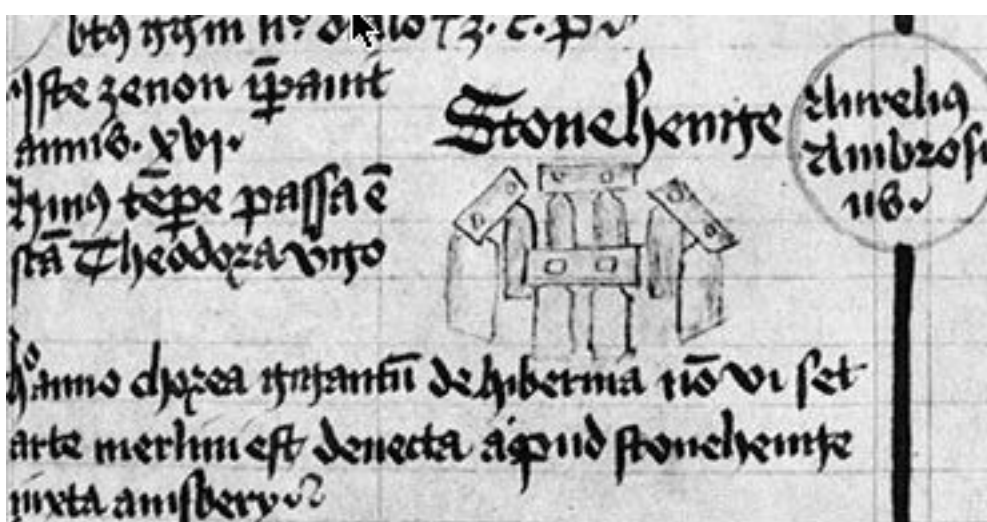 Iste zenon īp̄auit
annis. xvi.
Huiꝰ tēpe passa ē
sc̄a Theodora virgo
Stonehenge
Aureliꝰ
Ambrosi
us.
hᵒ anno chorea gigantū de hibernia nō vi set
arte merlini est deuecta apud stonehenge
iuxta amsbery